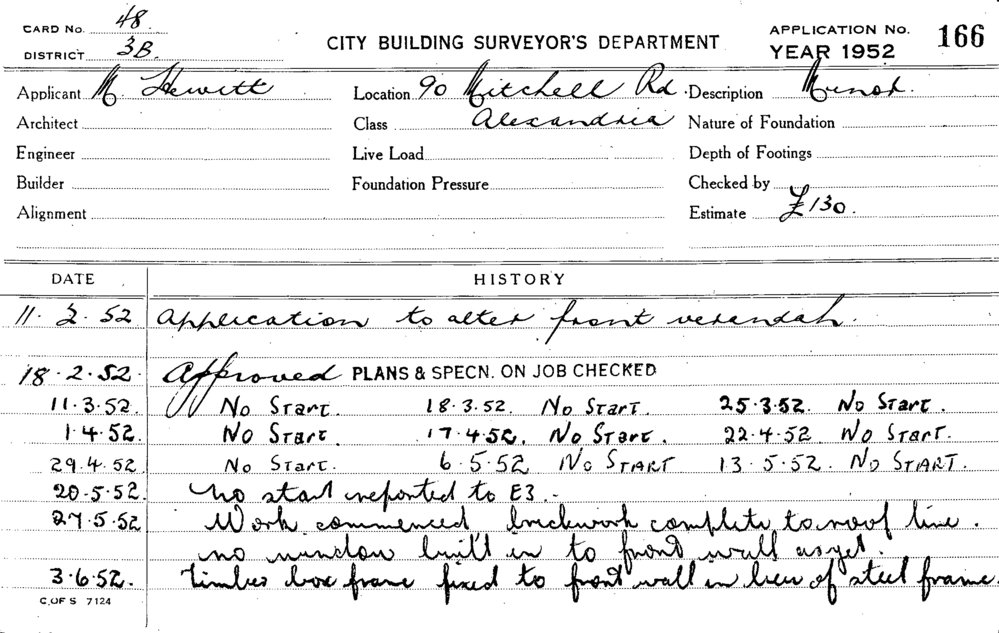 CARD No. 48
DISTRICT 3B.
CITY BUILDING SURVEYOR'S DEPARTMENT
APPLICATION No. 166
YEAR 1952
Applicant M. Hewitt Location 90 Mitchell Rd. Description Minor.
Architect Class Alexandria Nature of Foundation
Engineer Live Load Depth of Footings
Builder Foundation Pressure Checked by
Alignment Estimate £130.
DATE HISTORY
11.2.52 Application to alter front verandah.
18.2.52. Approved PLANS & SPECN. ON JOB CHECKED
11.3.52. No Start. 18.3.52. No Start. 25.3.52. No Start.
1.4.52. No Start. 17.4.52. No Start. 22.4.52. No Start.
29.4.52. No Start. 6.5.52 No START 13.5.52. No START.
20.5.52. No start reported to E3.
27.5.52 Work commenced brickwork complete to roof line.
no window built in to front wall as yet.
3.6.52. Timber box frame fixed to front wall in lieu of steel frame.
C.OF S 7124